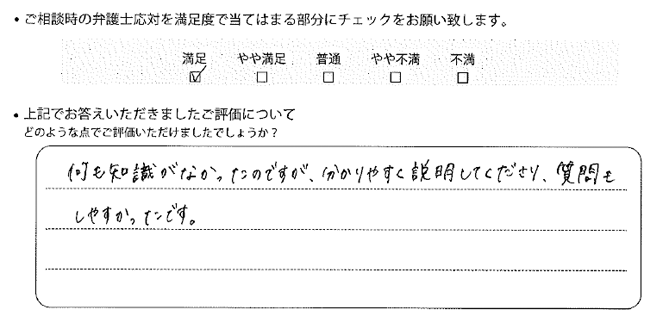 • ご相談時の弁護士応対を満足度で当てはまる部分にチェックをお願い致します。
満足 やや満足 普通 やや不満 不満
☑ □ □ □ □
• 上記でお答えいただきましたご評価について
どのような点でご評価いただけましたでしょうか？
何も知識がなかったのですが、分かりやすく説明してくださり、質問も
しやすかったです。